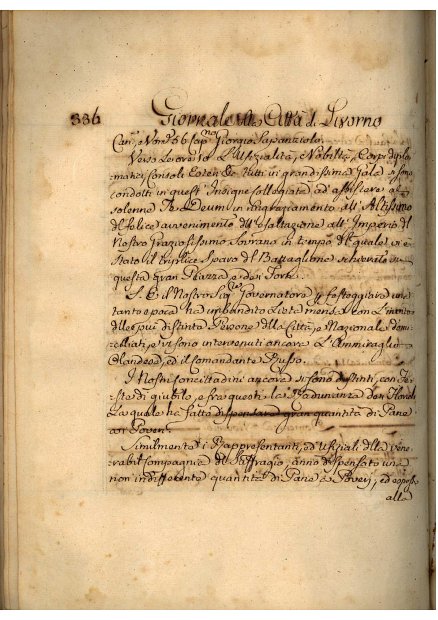 336 Giornale della Città di Livorno
Can.e Nove 56 Cap.no Giorgio
Verso le ore 10 L'Ufizialità, Nobiltà, Corpi diplo
matici, Consoli Esteri, e tutti in grandissima Gala si sono
condotti in quest'Insigne Collegiata ad assistere al
solenne Te Deum in ringraziamento all'Altissimo
del felice avvenimento dell'esaltazione all'Imperio del
Nostro Graziosissimo Sovrano in tempo del quale vi è
stato il triplice sparo del Battaglione schierato su
questa gran Piazza e dei Forti.
S. E. il Nostro Sig. Governatore p festeggiare una
tanto epoca ha imbandito Lieta mensa con L'invito
delle più distinte Persone della Città, e Nazionale domi
ciliati, e vi sono intervenuti ancora L'Ammiraglio
Olandese, ed il Comandante Russo.
I Nostri Concittadini ancora si sono distinti con Fe
ste di giubilo, e fra questi la Radunanza dei
La quale ha fatto dispensare gran quantità di Pane
ai Poveri.
Similmente i Rappresentanti, ed Ufiziali della Vene
rabil Compagnia del Suffragio, anno dispensato una
non indifferente quantità di Pane a Poveri, ed espos
alla